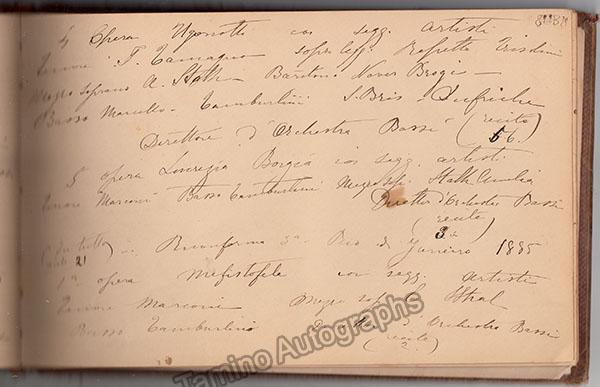 4 Opera Ugonotti con segg. artisti
Tenore F. Tamagno sopr. legg. Repetto Trisolini
Mezzo soprano A. Stahl - Baritono Never Brogi -
Basso Marcello - Tamburlini S. Bris - Dufriche
Direttore d'Orchestra Bassi (recite 6.)
5 opera Lucrezia Borgia con segg. artisti
Tenore Marconi Basso Tamburlini Mezzo Stahl Amelia
Direttor d'Orchestra Bassi
(recite
3
21 Riconferma Rio de Janeiro 1885
1a opera Mefistofele con segg. artisti
Tenore Marconi Mezzo sop. Sthal
Basso Tamburlini d'Orchestra Bassi
(recite
2.)
Tamino Autographs